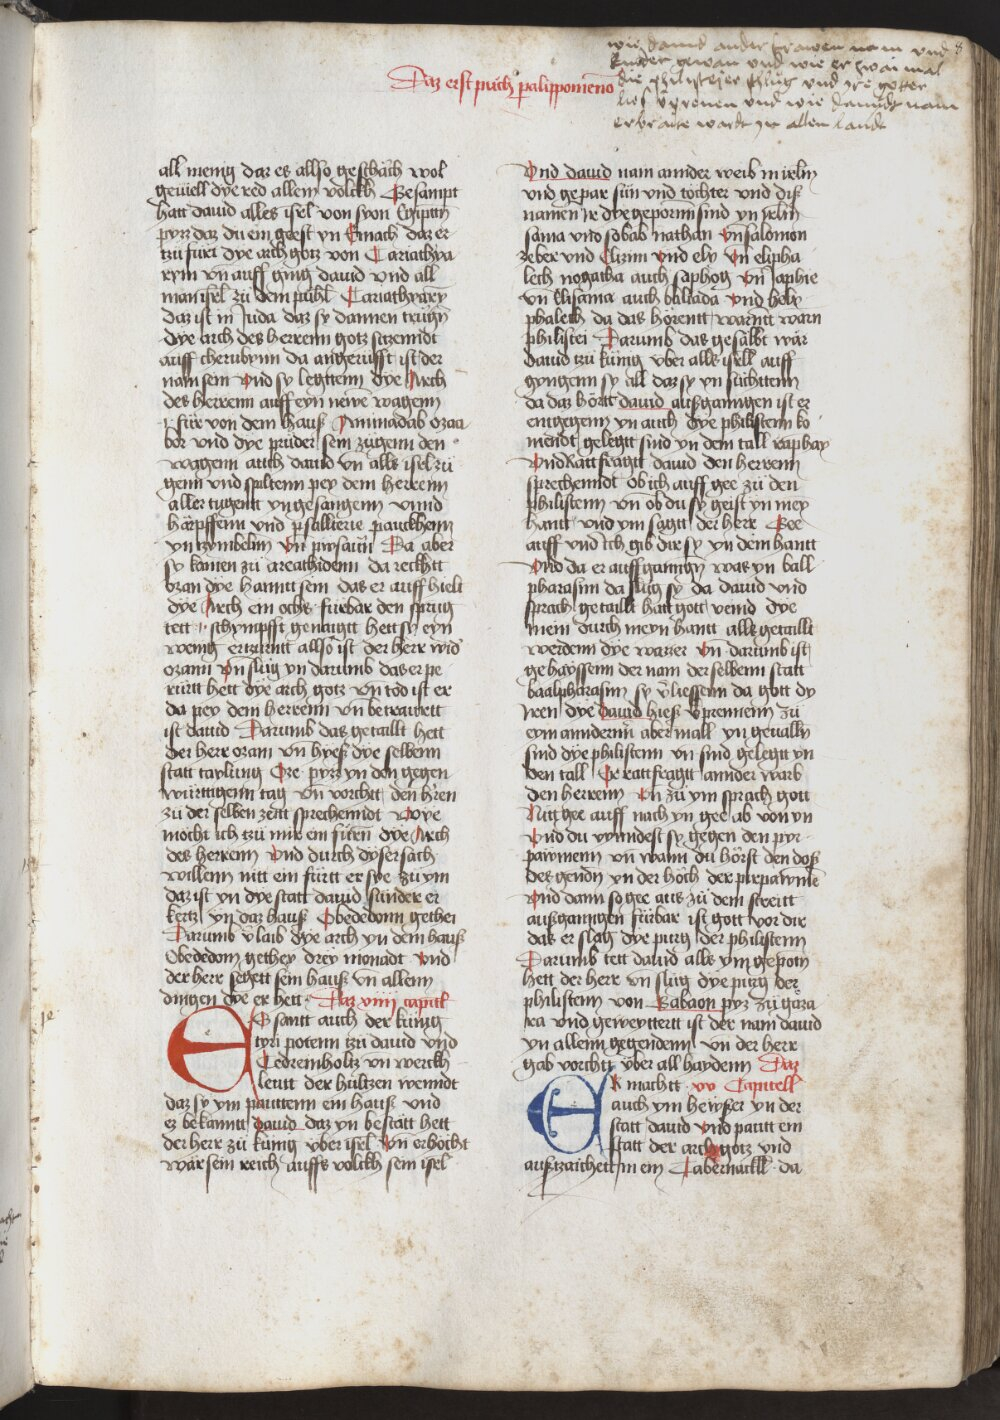 wie dauid ander frawen nam vnd 8
kinder gewan vnd wie er zwai mal
die philisteier schlug vnd yre götter
lies vprenen vnd wie dauidt nam
erbraite wardt yn allen landt
Daz erst púch paralipponenō
all menig daz es allso geschäch wol
geuiell dye red allem volckh Besampt
hatt dauid alles isrl von syon Egipttn
pyz daz du ein geest yn Emach daz er
tzü fürt dye arch gotz von Cariathya
rym vn̄ auff ging dauid vnd all
man isrl zü dem pühl Cariathyarÿ
daz ist in Juda daz sy dannen trügn
dye arch des herrenn gotz sitzenndt
auff cherubynn da angerüfft ist der
nam sein Vnd sy legttenn dye Arch
des herrenn auff eyn newe wagenn
für von dem hauß Aminadab oza
bor vnd dye prüder sein zügenn den
wagenn auch dauid vn̄ alls isrl zü
genn vnd spiltenn pey dem herrenn
aller tugentt yn gesangenn vnnd
härpffenn vnd psallterie pauckhenn
yn tzymbeln Vn̄ pusaün Da aber
sy kamen zü areathidenn da reckhtt
ozan dye hanntt sein das er auff hielt
dye Arch ein ochs fürbar den sprüg
tett schympfft genaugtt hett sy eyn
wenig ertzürntt allso ist der herr wid
ozann Vn̄ slüg yn darumb das er pe
rürtt hett dye arch gotz vn̄ tod ist er
da pey dem herrenn vn̄ betraurett
ist dauid Darumb das getaillt hett
der herr ozam vn̄ hyeß dye selbenn
statt taylung Oze pyz yn den gegen
württigenn tag vn̄ vorchtt den hren
zü der selben zeitt sprechenndt Wye
möcht ich tzü mir ein fürn dye Arch
des herrenn Vnd durch dyser sach
willenn nitt ein fürtt er sye zü ym
daz ist yn dye statt dauid sunder er
kertz yn daz hauß Obededonn gethei
Darumb v̄laib dye arch yn dem hauß
Obededom gethey drey monadt Vnd
der herr segett sein hauß vn̄ allenn
dingen dye er hett Daz xiiii capitl
ES santt auch der künig
tyri potenn tzü dauid vnd
Cedrein holtz vn werckh
leutt der hültzen wenndt
daz sy ym pauttenn ein hauß vnd
ez bekanntt dauid daz yn bestätt hett
der herr zü künig vber isrl Vn̄ erhöcht
wär sein reich auffs volckh sein isrl
Vnd dauid nam annder weib in irlm
vnd gepar sün vnd töchter vnd diß
namen ir dye geporn sind yn irlm
sama vnd sobab nathan Vn̄ salomon
zeber vnd Elizim Vnd ely Vn̄ elipha
lech nogatha auch saphog Vn̄ iaphie
vn̄ Elisama auch baliada Vnd helys
phaleth da das hörentt warntt warn
philistei Darumb das gesalbt wär
dauid tzü künig vber alls isrll auff
gyngenn sy all daz sy yn süchttenn
da daz hörtt dauid ausgangen ist er
enttgegenn yn auch dye philistenn ko
mendt gelegtt sind yn dem tall raphay
Vnd Rattfragtt dauid den herrenn
sprechenndt ob ich auff gee zü den
philistenn vn̄ ob du sy geist yn mey
hantt vnd ym sagtt der herr Gee
auff vnd ich gib dir sy yn dein hantt
Vnd da er auff ganngn was yn ball
pharasim da slüg sy da dauid vnd
sprach getaillt hatt gott veind dye
mein durch meyn hantt alls getaillt
werdenn dye wazzer Vn̄ darumb ist
gehayssenn der nam der selbenn statt
baalpharasim sy v̄liessenn da gott dy
iren dye dauid hieß v̄prennenn zü
eym anndernn aber mall yn geualln
sind dye philistenn vn̄ sind gelegtt yn
den tall Er rattfragtt annder warb
den herrenn Vn̄ zü ym sprach gott
Nitt gee auff nach yn gee ab von yn
Vnd du vynndest sy gegen den pyr
pawmenn vn̄ wann du hörst den doß
des genön yn der höch der pirpawme
Vnd dann so gee aus zü dem streitt
außganngen fürbar ist gott vor dir
das er slag dye purg der philistenn
Darumb tett dauid alls ym gepotn
hett der herr vn̄ slüg dye purg der
philistenn von Gabaon pyz zü gaza
ra vnd geweyttertt ist der nam dauid
yn allenn gegendenn vn̄ der herr
gab vorchtt vber all haydenn Daz
ER machtt xv Capitell
auch ym hewser yn der
statt dauid Vnd pautt ein
statt der arch gotz vnd
aufzaichett im ein Tabernackll da